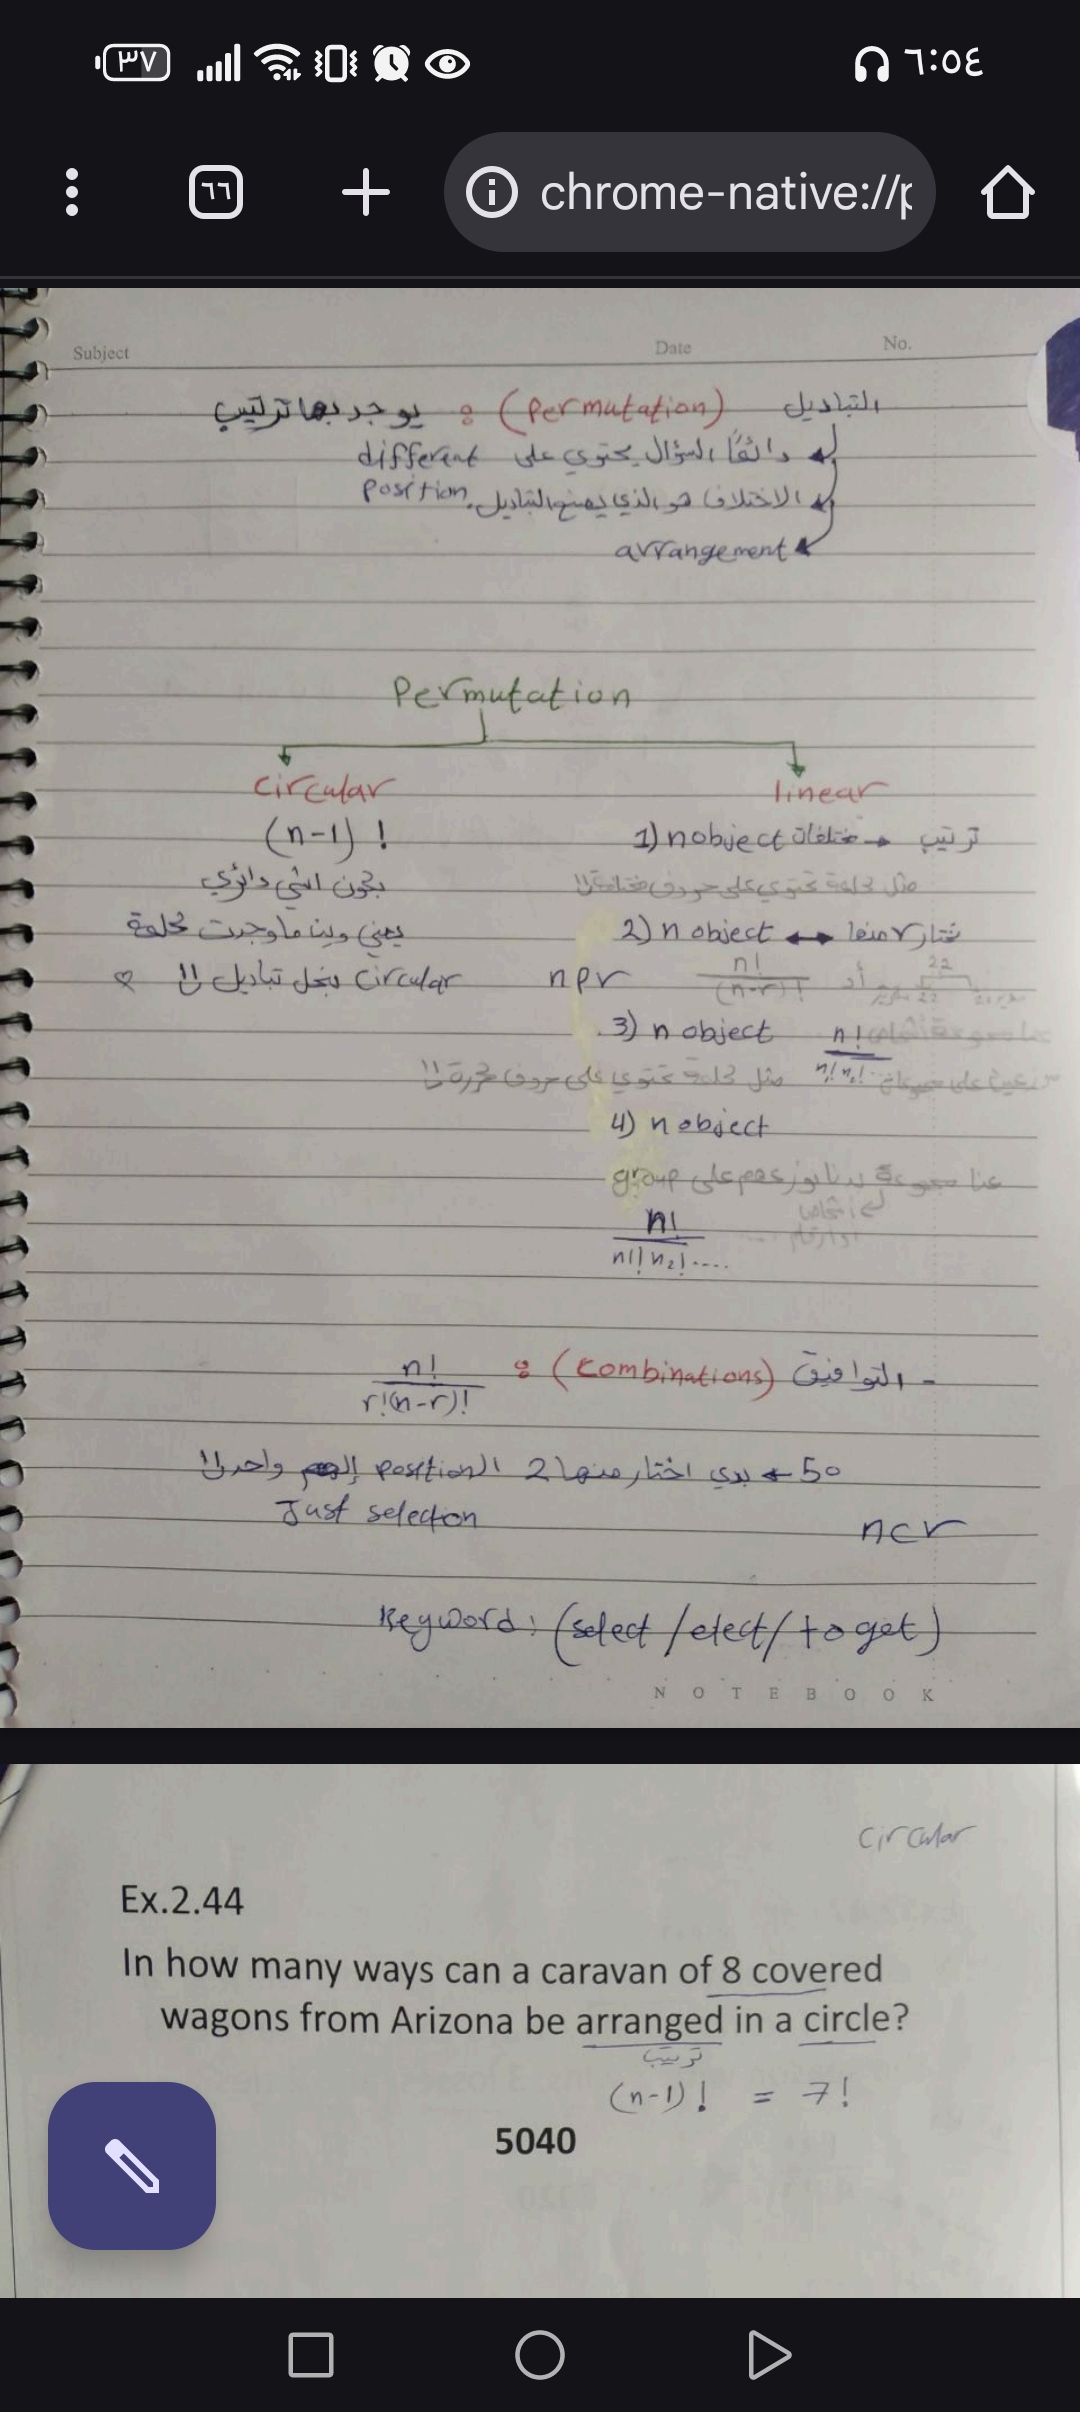 ٣٧
٦:٥٤
٦٦
chrome-native://p
Subject Date No.
التباديل (Permutation) : يوجد بها ترتيب
دائمًا السؤال يحتوي على different
position الاختلاف هو الذي يصنع التباديل.
arrangement
Permutation
circular
linear
(n-1) !
1) n object مختلفات → ترتيب
بكون اشي دائري
مثل كلمة تحتوي على حروف مختلفة!!
يعني وينما وجدت كلمة
2) n object ↔ نختار r منها
circular بنحل تباديل !! ♡
npr n!/(n-r)! أو
3) n object n!/n₁!n₂!...
مثل كلمة تحتوي على حروف مكررة!!
4) n object
عنا مجموعة بدنا نوزعهم على group
أشخاص
أو أرقام ....
n!/n1! n₂!....
- التوافيق (Combinations) : n!/r!(n-r)!
50 ← بدي اختار منها 2 ال position إلهم واحد!!
Just selection
ncr
Keyword: (select / elect / to get)
NOTEBOOK
circular
Ex.2.44
In how many ways can a caravan of 8 covered
wagons from Arizona be arranged in a circle?
ترتيب
(n-1)! = 7!
5040